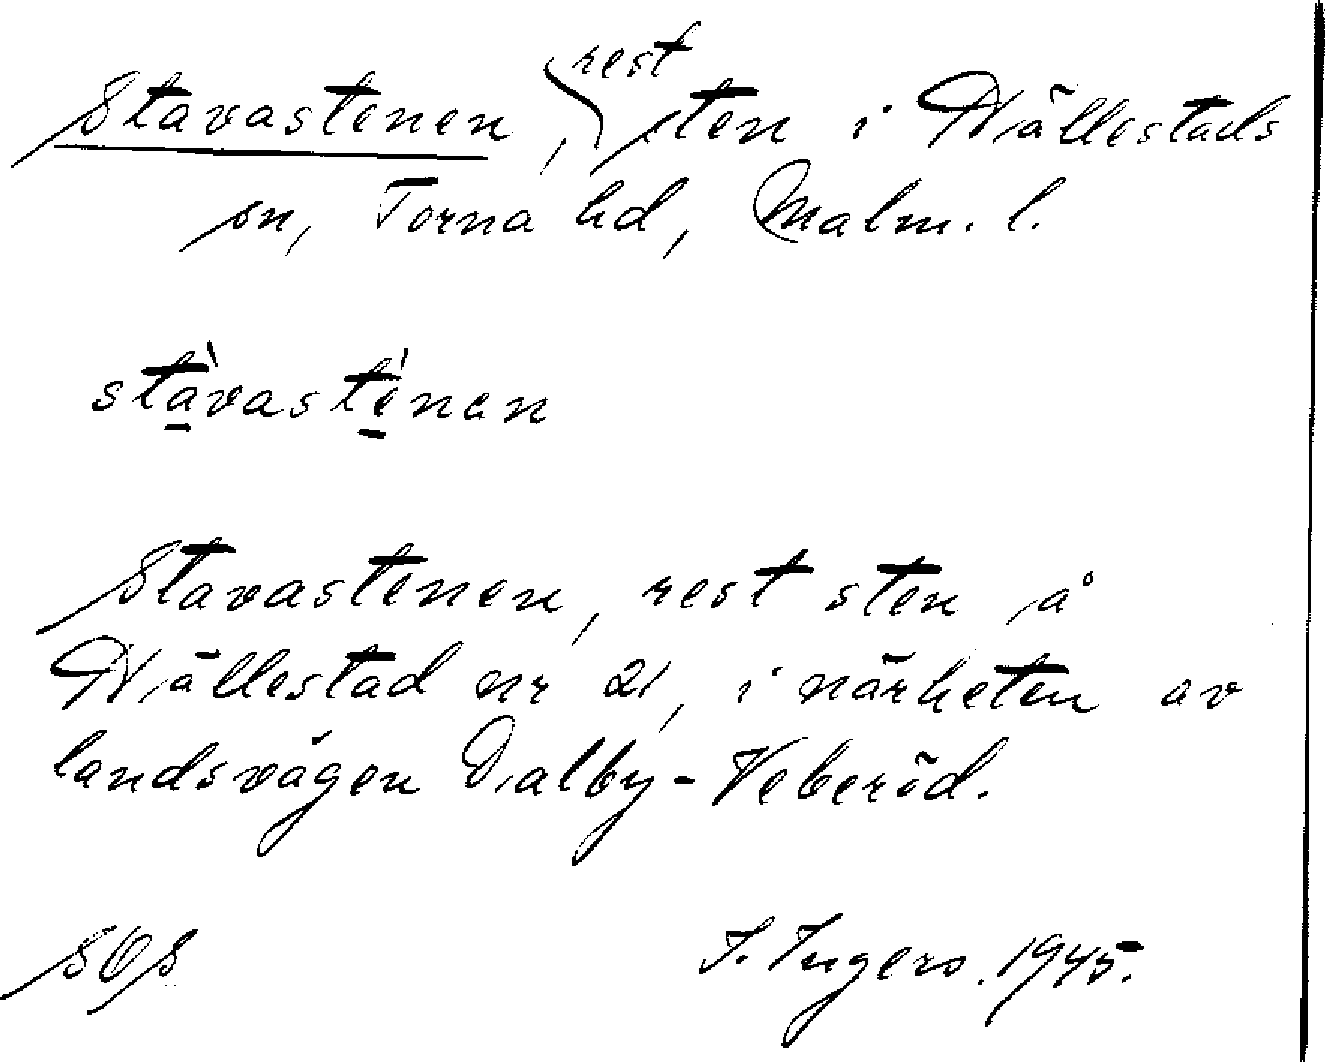 Stavastenen, rest sten i Hällestads
sn, Torna hd, Malm. l.
stàvasténen
Stavastenen, rest sten å
Hällestad nr 21, i närheten av
landsvägen Dalby-Veberöd.
SOS I. Ingers. 1945.